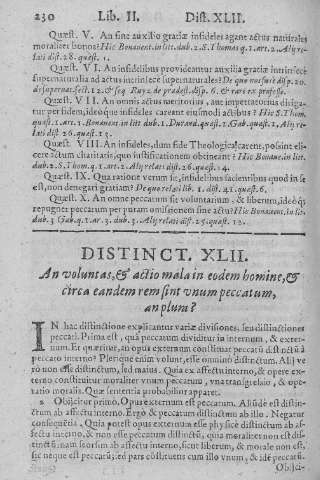 230 Lib. II. Dist. XLII.
Quæst. V. An sine auxilio gratiæ infideles agant actus naturales
moraliter bonos? Hic Bonauent. in litt. dub. 2. S. Thomas q. 1. art. 2. Alij re-
lati dist. 28. quæst. 1.
Quæst. VI. An infidelibus prouideantur auxilia gratiæ intrinsecè
supernaturalia ad actus intrinsecè supernaturales? De quo
Quæst. VII. An omnis actus
tur per fidem, ideoque infideles careant eiusmodi actibus? Hic S. Thom.
quæst. 1. art. 1. Bonauent. in litt. dub. 1. Durand. quæst. 1. Gab. quæst. 1. Alij re-
lati dist. 26. quæst. 13.
Quæst. VIII. An infideles, dum fide Theologica carent, possint eli-
cere actum charitatis, quo iustificationem obtineant? Hic Bonaue. in litt.
dub. 2. S. Thom. q. 1. art. 2. Alij relati dist. 26. quæst. 14.
Quæst. IX. Qua ratione verum sit, infidelibus facientibus quod in se
est, non denegari gratiam? De quo relati lib. 1. dist. 41. quæst. 6.
Quæst. X. An omne peccatum sit voluntarium, & liberum, ideoq́;
repugnet peccatum per puram omissionem sine actu? Hic Bonauent. in litt.
dub. 3. Gab. q. 1. ar. 3. dub. Alij relati dist. 35. quæst. 12.
DISTINCT. XLII.
An voluntas, & actio mala in eodem homine, &
circa eandem rem sint vnum peccatum,
an plura?
IN hac distinctione explicantur variæ diuisiones, seu distinctiones
peccati. Prima est, quâ peccatum diuiditur in internum, & exter-
num. Et quæritur, an opus externum constituat peccatū distinctū à
peccato interno? Plerique enim volunt, esse omnino distinctum. Alij ve-
rò non esse distinctum, sed maius. Quia ex affectu interno, & opere ex-
terno constituitur moraliter vnum peccatum, vna transgressio, & ope-
ratio moralis. Quæ sententia probabilior apparet.
2 Obijcitur primò. Opus externum est peccatum. Aliūde est distin-
ctum ab affectu interno. Ergò & peccatum distinctum ab illo. Negatur
consequētia. Quia potest opus externum esse physicè distinctum ab af-
fectu interno, & non esse peccatum distinctū, quia moraliter non est dis-
tinctū: nam seorsim ab affectu interno, sicut liberum, & morale non est,
sic neque est peccatū; sed pars cōstituens cum illo vnum, & idē peccatū.
Obijci-